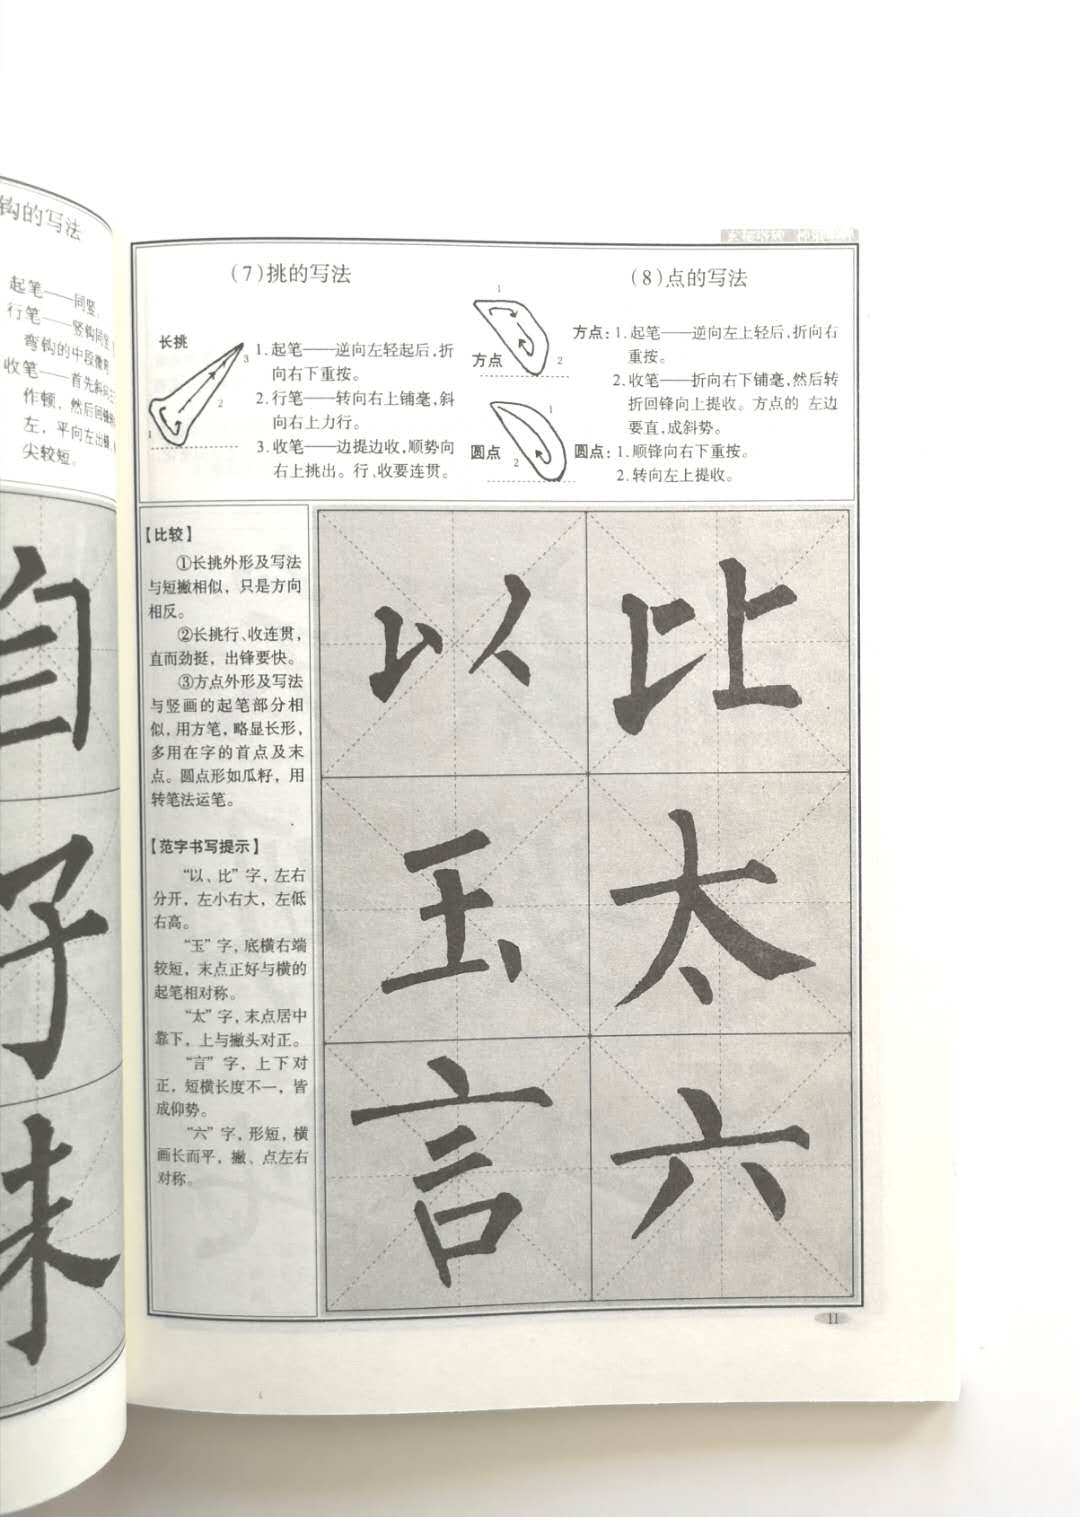 钩的写法
起笔——同竖。
行笔——竖钩同竖
弯钩的中段像弯
收笔——首先斜向左
作顿，然后回锋
左，平向左出锋
尖较短。
自
子
未
(7)挑的写法
长挑
1
2
3
1.起笔——逆向左轻起后，折
向右下重按。
2.行笔——转向右上铺毫，斜
向右上力行。
3.收笔——边提边收，顺势向
右上挑出。行、收要连贯。
(8)点的写法
方点
1
2
圆点
1
2
方点：1.起笔——逆向左上轻后，折向右
重按。
2.收笔——折向右下铺毫，然后转
折回锋向上提收。方点的 左边
要直，成斜势。
圆点：1.顺锋向右下重按。
2.转向左上提收。
【比较】
①长挑外形及写法
与短撇相似，只是方向
相反。
②长挑行、收连贯，
直而劲挺，出锋要快。
③方点外形及写法
与竖画的起笔部分相
似，用方笔，略显长形，
多用在字的首点及末
点。圆点形如瓜籽，用
转笔法运笔。
【范字书写提示】
“以、比”字，左右
分开，左小右大，左低
右高。
“玉”字，底横右端
较短，末点正好与横的
起笔相对称。
“太”字，末点居中
靠下，上与撇头对正。
“言”字，上下对
正，短横长度不一，皆
成仰势。
“六”字，形短，横
画长而平，撇、点左右
对称。
以 比
玉 太
言 六
11